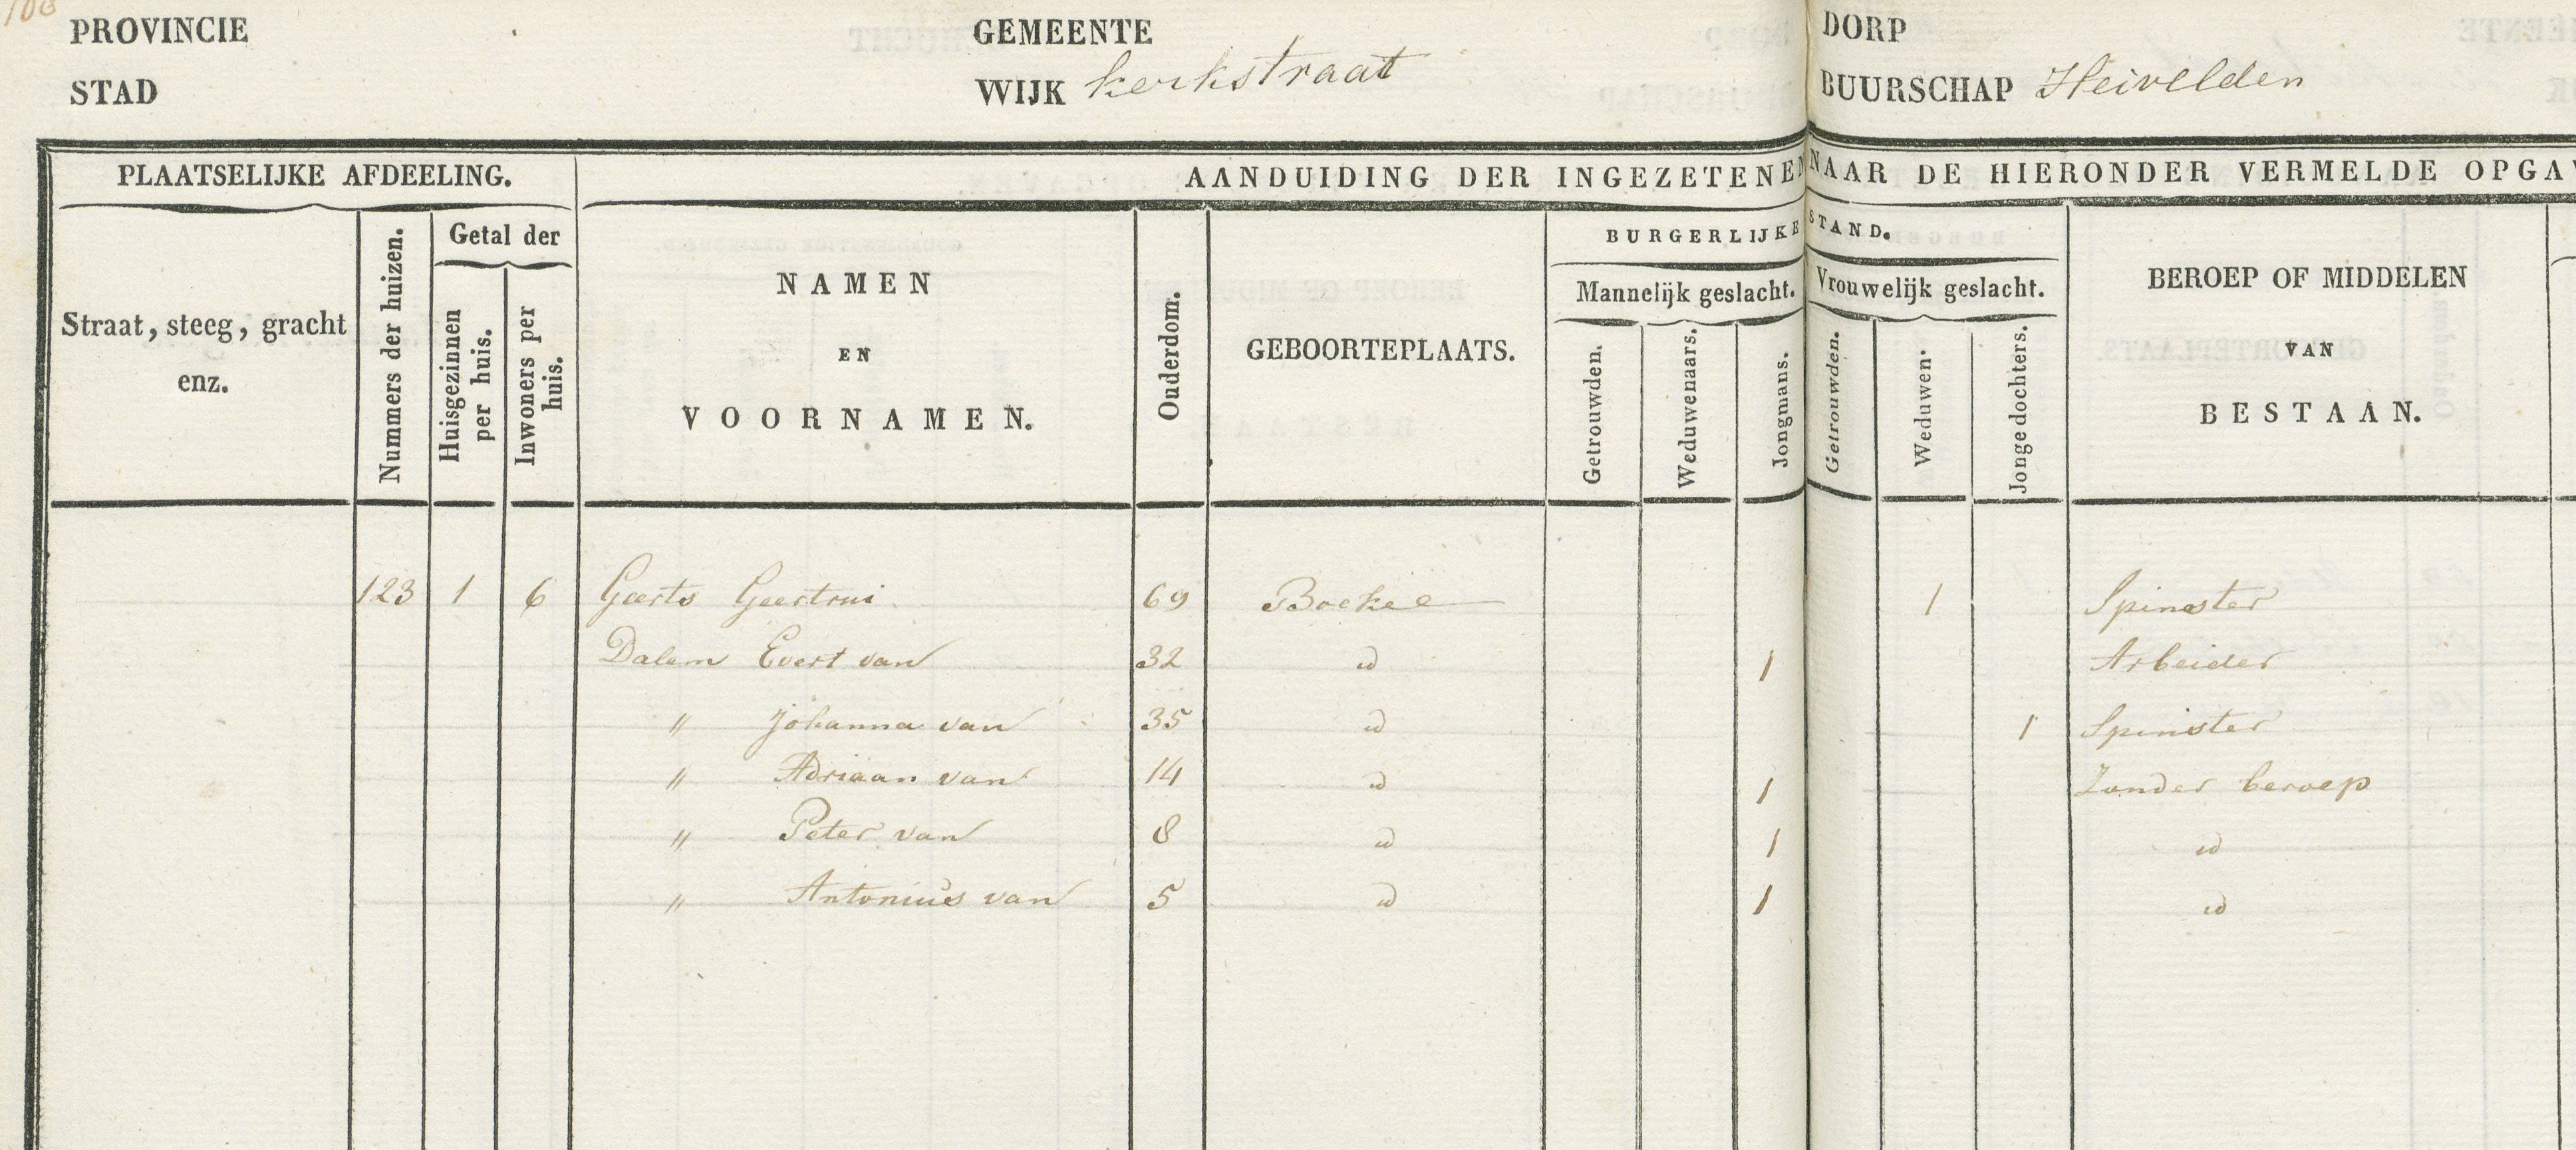 PROVINCIE GEMEENTE DORP
STAD WIJK kerkstraat BUURSCHAP Heivelden
PLAATSELIJKE AFDEELING. AANDUIDING DER INGEZETENEN NAAR DE HIERONDER VERMELDE OPGAV
Straat, steeg, gracht enz.
Nummers der huizen.
Getal der
Huisgezinnen per huis.
Inwoners per huis.
NAMEN
EN
VOORNAMEN.
Ouderdom.
GEBOORTEPLAATS.
BURGERLIJKE STAND.
Mannelijk geslacht. Vrouwelijk geslacht.
Getrouwden. Weduwenaars. Jongmans. Getrouwden. Weduwen. Jonge dochters.
BEROEP OF MIDDELEN
VAN
BESTAAN.
123 1 6 Geerts Geertrui 69 Boekel 1 Spinster
Dalem Evert van 32 id 1 Arbeider
" Johanna van 35 id 1 Spinster
" Adriaan van 14 id 1 Zonder beroep
" Peter van 8 id 1 id
" Antonius van 5 id 1 id